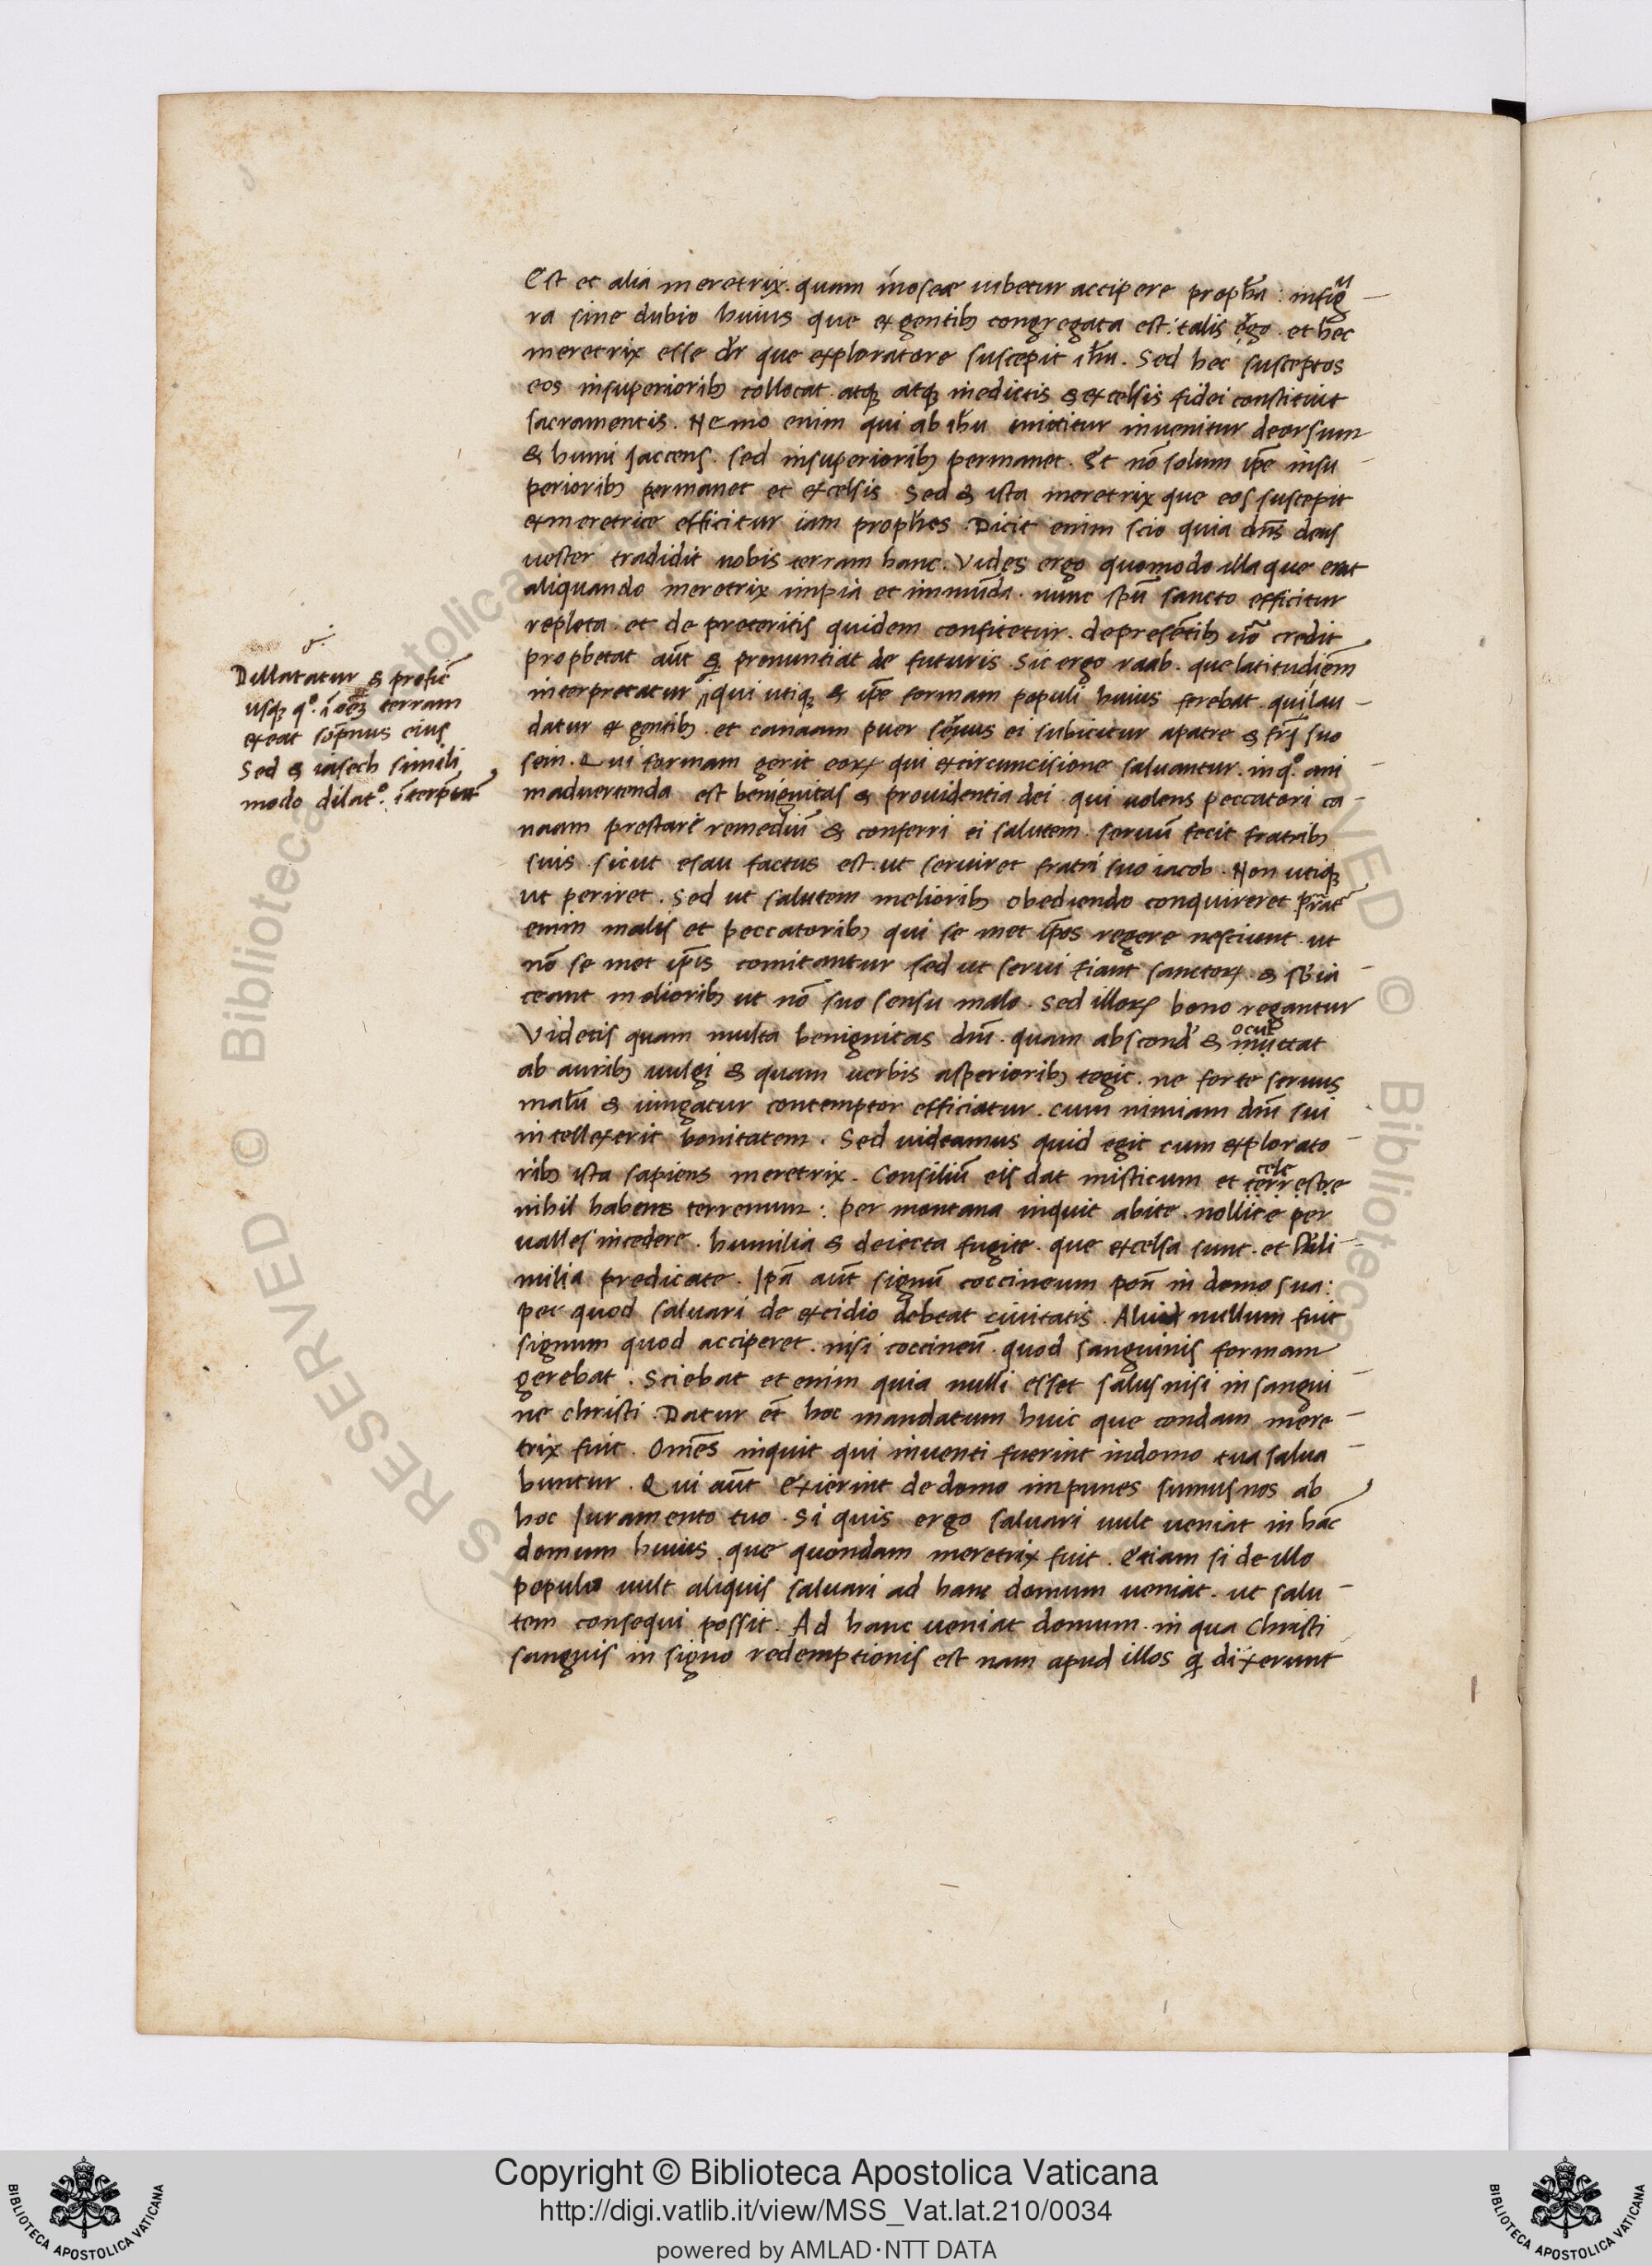 Est et alia meretrix. quam in osee iubetur accipere prophã: in figu
ra sine dubio huius que ex gentib; congregata est. talis ergo. et hec
meretrix esse dr̃ que exploratore suscepit ihũ. Sed hec susceptos
eos in superiorib; collocat. atq; atq; in edictis & excelsis fidei constituit
sacramentis. Nemo enim qui ab ihũ mittitur inuenitur deorsum
& humi iaccens. sed in superiorib; permanet. Et nõ solum ip̃e in su
periorib; permanet et excelsis Sed & ista meretrix que eos suscepit
ex meretrice efficitur iam prophes. Dicit enim scio quia dñs deus
uester tradidit uobis terram hanc. Vides ergo quomodo illa que erat
aliquando meretrix impia et immũda. nunc spũ sancto efficitur
repleta. et de preteritis quidem confitetur. de presẽtib; uõ credit
prophetat aũt & pronuntiat de futuris. Sic ergo raab. que latitudiẽm
interpretatur qui utiq; & ip̃e formam populi huius ferebat. qui lau
datur ex gentib; et canaam puer seruus ei subicitur a patre & frĩ suo
sein. Qui formam gerit eorum qui ex circuncisione saluantur. in qº. ani
maduertenda est benignitas & prouidentia dei. qui uolens peccatori ca
naam prestari remediũ & conferri ei salutem. seruũ fecit fratrib;
suis. sicut esau factus est. ut seruiret fratri suo iacob. Non utiq;
ut periret. Sed ut salutem meliorib; obediendo conquireret
enim malis et peccatorib; qui se met ip̃os regere nesciunt. ut
nõ se met ip̃is comitantur sed ut serui fiant sanctorum. & sb̃ia
ceant meliorib; ut nõ suo sensu malo. sed illorum bono regantur
Videtis quam multa benignitas dñi. quam abscond' & ocul muctat
ab aurib; uulgi & quam uerbis asperiorib; tegit. ne forte seruus
malũ & uirgatur contemptor efficiatur. cum nimiam dñi sui
intellexerit bonitatem. Sed uideamus quid egit cum explorato
rib; ista sapiens meretrix. Consiliũ eis dat misticum et cele terrestre
nihil habens terrenum: per montana inquit abite. nollite per
ualles incedere. humilia & deiecta fugite. que excelsa sunt. et
milia predicate. Ip̃a aũt signũ coccineum pon̄ in domo sua:
per quod saluari de excidio debeat ciuitatis. Aliud nullum fuit
signum quod acciperet. nisi coccineũ. quod sanguinis formam
gerebat. Sciebat et enim quia nulli esset salus nisi in sangui
ne christi. Datur et̃ hoc mandatum huic que condam mere
trix fuit. Om̃es inquit qui inuenti fuerint in domo tua salua
buntur. Qui aũt exierint de domo impunes sumus nos ab
hoc Iuramento tuo. Si quis ergo saluari uult ueniat in hãc
domum huius. que quondam meretrix fuit. Etiam si de illo
populo uult aliquis saluari ad hanc domum ueniat. ut salu
tem consequi possit. Ad hanc ueniat domum. in qua Christi
sanguis in signo redemptionis est nam apud illos q̃ dixerunt
Dillatatur & profic̃
usq; qº. ĩ oẽm terram
exeat sop̃nus eius
Sed & iasech simili
modo dilatº. ĩterp̃tat'
Copyright © Biblioteca Apostolica Vaticana
http://digi.vatlib.it/view/MSS_Vat.lat.210/0034
powered by AMLAD·NTT DATA
BIBLIOTECA APOSTOLICA VATICANA
BIBLIOTECA APOSTOLICA VATICANA